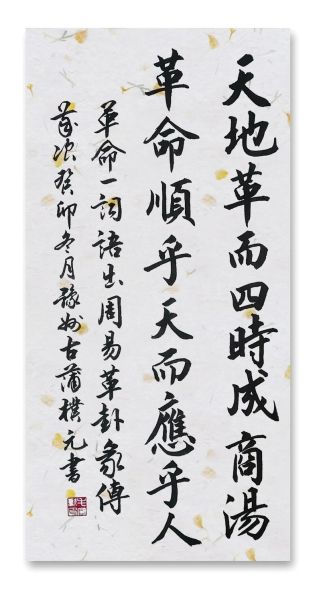 天地革而四時成商湯
革命順乎天而應乎人
革命一詞語出周易革卦彖傳
歲次癸卯冬月豫州古蒲樸元書